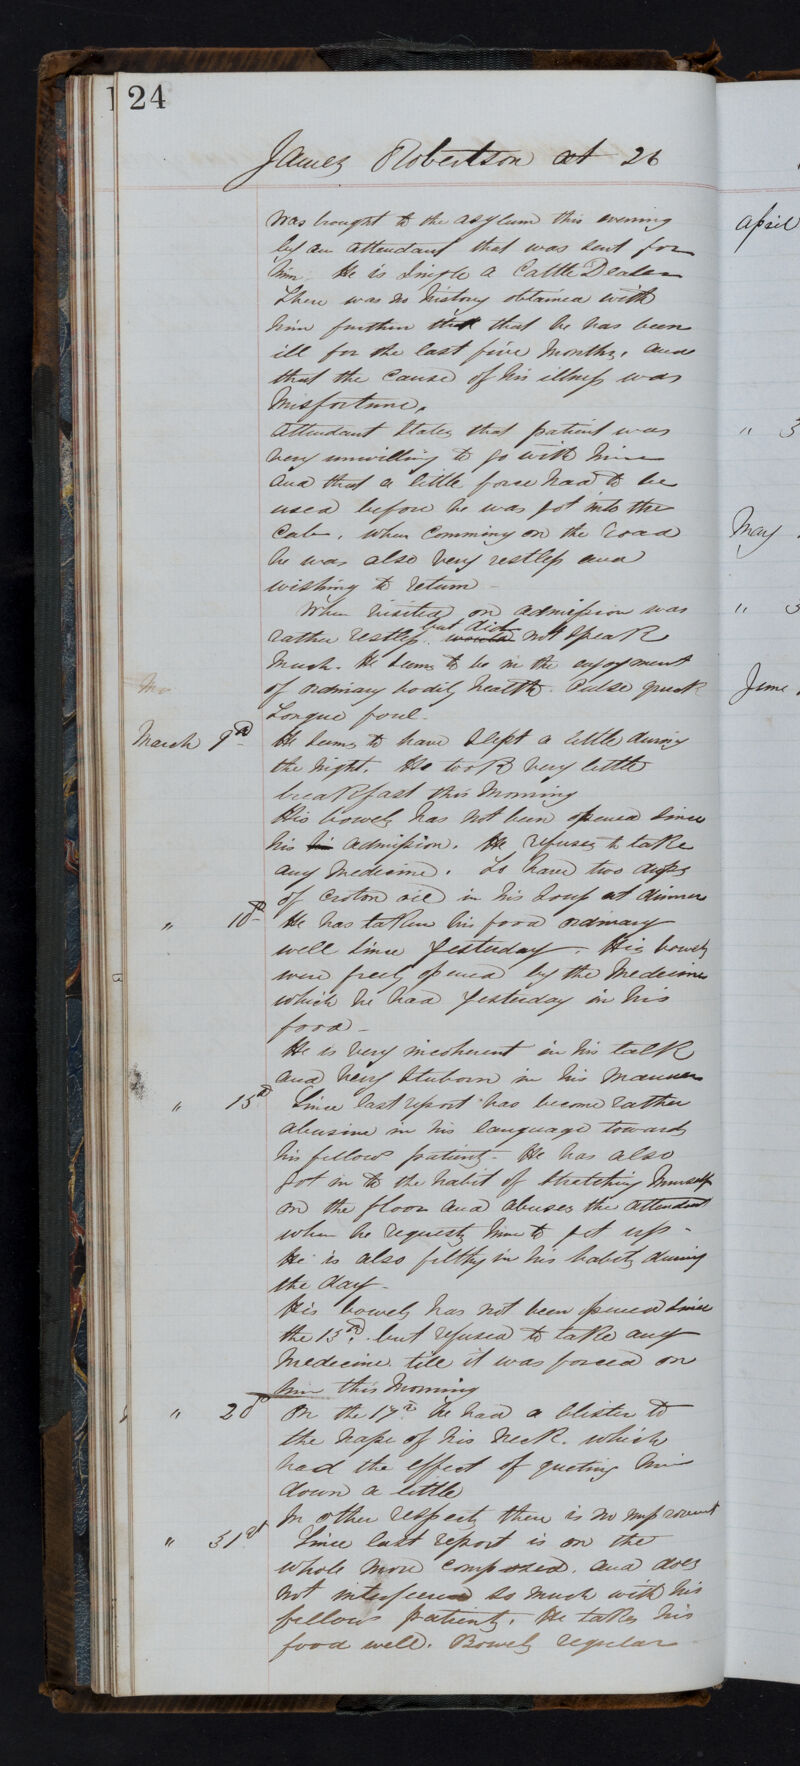 124
James Robertson at 26
was brought to the asylum this evening
by an attendant that was sent for
him. He is Single a Cattle Dealer
There was no history obtained with
him further that that he has been
ill for the last five Months, and
that the cause of his illness was
Misfortune.
Attendant States that patient was
very unwilling to go with him
and that a little force had to be
used before he was got into the
Cab, when comming on the road
he was also very restless and
wishing to return
When visited on admission was
rather restless but did would not speak
much. He seems to be in the enjoyment
of ordinary bodily health. Pulse quick
Tongue foul.
March 9th He seems to have slept a little during
the night. He took very little
breakfast this Morning
His bowels has not been opened since
his admission. He refuses to take
any Medicine. To have two drops
of croton oil in his soup at dinner
" 10th He has taken his food ordinary
well since yesterday. His bowels
were freely opened by the Medicine
which he had yesterday in his
food
He is very incoherent in his talk
and very stuborn in his Manner
" 15th Since last report has become rather
abusive in his language towards
his fellow patients. He has also
got in to the habit of stretching himself
on the floor and abuses the attendant
when he requests him to get up
He is also filthy in his habits during
the day.
His bowels has not been opened since
the 13th but refused to take any
Medicine till it was forced on
him this Morning
" 20th On the 17th he had a blister to
the nape of his neck. which
had the effect of queting him
down a little
In other respects there is no improvement
" 31st Since last report is on the
whole more composed, and does
not interfere so much with his
fellow patients. He takes his
food well. Bowels regular
April
" 3
May
" 3
June